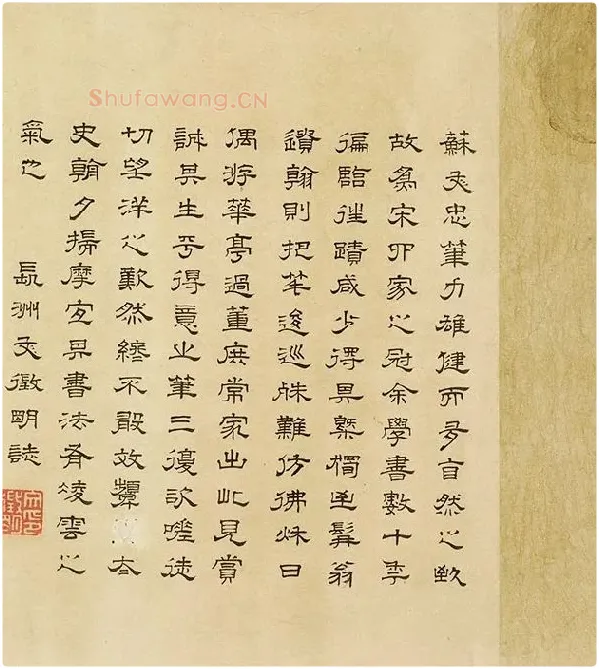 Shufawang.CN
蘇文忠筆力雄健而多自然之致
故為宋四家之冠余學書數十年
徧臨往蹟咸少得其槩獨髯翁
遺翰則把筆逡巡殊難仿彿秋日
偶游華亭過董庶常家出此見賞
誠其生平得意之筆三復徒
切望洋之歎然終不敢效顰太
史朝夕摩宜其書法有凌雲之
氣也 長洲文徵明誌